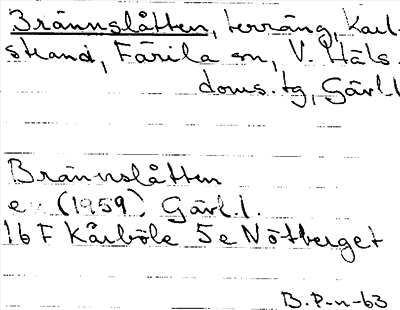 Brännslåtten, terräng, Karl-
strand, Färila sn, V. Häls.
doms. tg, Gävl. l
Brännslåtten
e (1959) Gävl. l.
16 F Kårböle 5e Nötberget
B. P-n -63